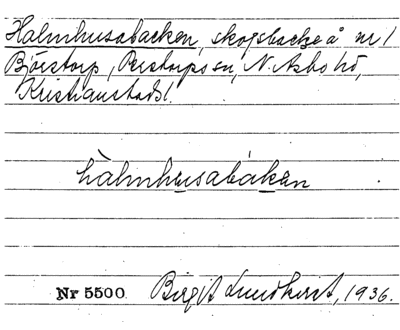 Halmhusabacken, skogsbacke å nr 1
Björstorp, Perstorps sn, N. Åsbo hd,
Kristianstads l.
hàlmhusabákan
Nr 5500 Birgit Lundkvist, 1936.